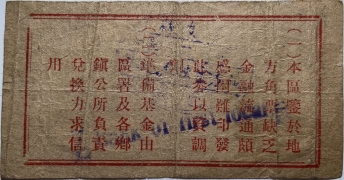 (一)本區鑒於地
方角票缺乏
金融流通頗
感困難印發
此券以資調
劑
(二)準備基金由
區署及各鄉
鎮公所負責
兌換力求信
用